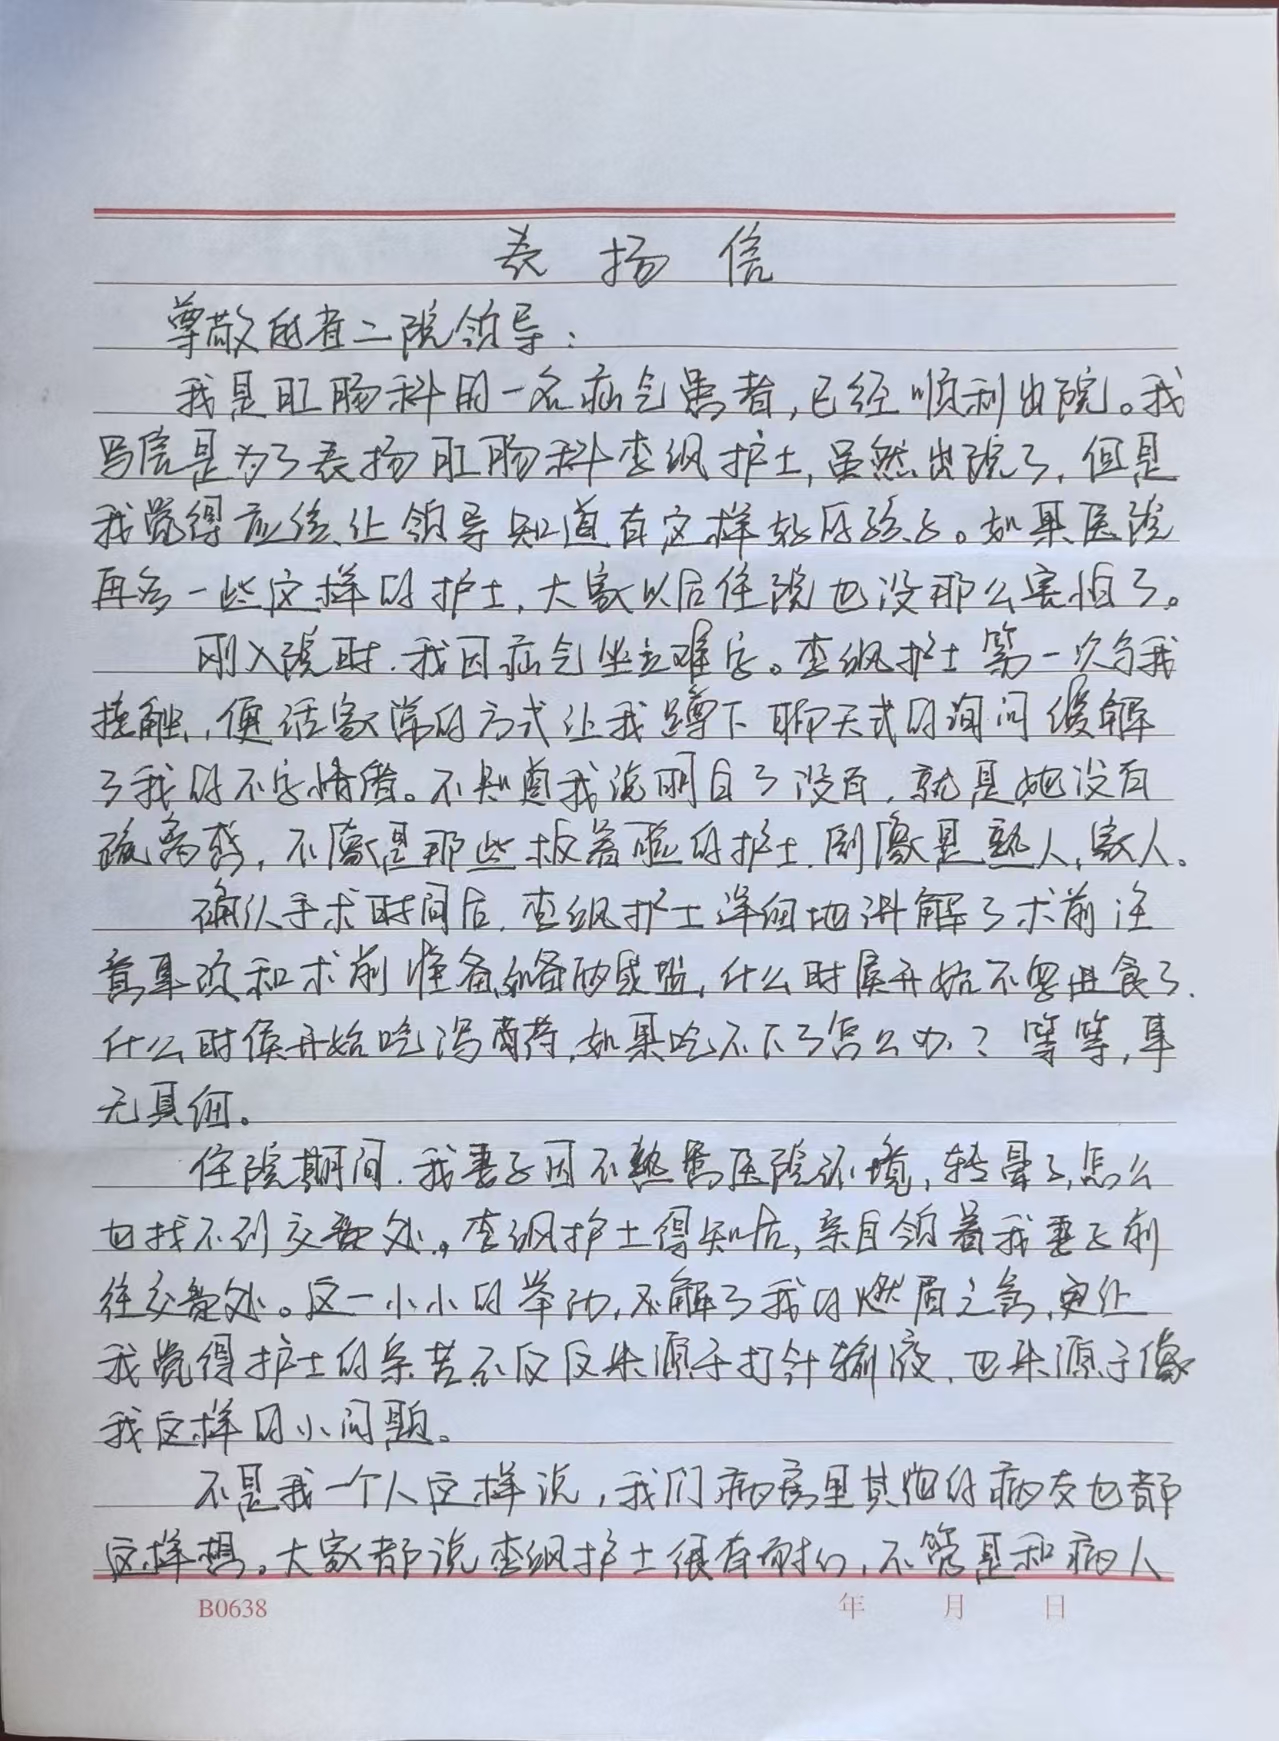 表扬信
尊敬的省二院领导：
我是肛肠科的一名疝气患者，已经顺利出院。我
写信是为了表扬肛肠科李纲护士，虽然出院了，但是
我觉得应该让领导知道有这样好的孩子。如果医院
再多一些这样的护士，大家以后住院也没那么害怕了。
刚入院时，我因疝气坐立难安。李纲护士第一次与我
接触，便话家常的方式让我蹲下聊天式的询问缓解
了我的不安情绪。不知道我说明白了没有，就是她没有
疏离感，不像是那些板着脸的护士，倒像是熟人，家人。
确认手术时间后，李纲护士详细地讲解了术前注
意事项和术前准备，什么时候开始不要进食了，
什么时候开始吃泻药，如果吃不下了怎么办？等等，事
无具细。
住院期间，我妻子因不熟悉医院环境，转晕了，怎么
也找不到交费处。李纲护士得知后，亲自领着我妻子前
往交费处。这一小小的举动，不解了我的燃眉之急，更让
我觉得护士的辛苦不仅仅来源于打针输液，也来源于像
我这样的小问题。
不是我一个人这样说，我们病房里其他的病友也都
这样想。大家都说李纲护士很有耐心，不管是和病人
B0638 年 月 日